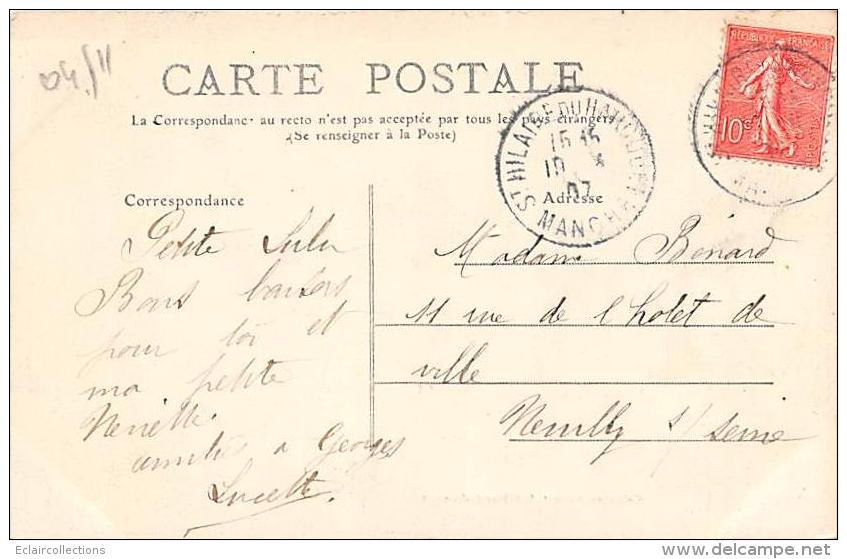 04/11
CARTE POSTALE
La Correspondance au recto n'est pas acceptée par tous les pays étrangers
(Se renseigner à la Poste)
Correspondance
Adresse
ST HILAIRE DU HARCOUET
15 45
19 X
07
MANCHE
RÉPUBLIQUE FRANÇAISE
10c
Petite Lulu
Bons baisers
pour toi et
ma petite
Nenette
amitiés à Georges
Lucette
Madame Bénard
11 rue de l'hotel de
ville
Neuilly s/ Seine
Eclaircollections
www.delcampe.net